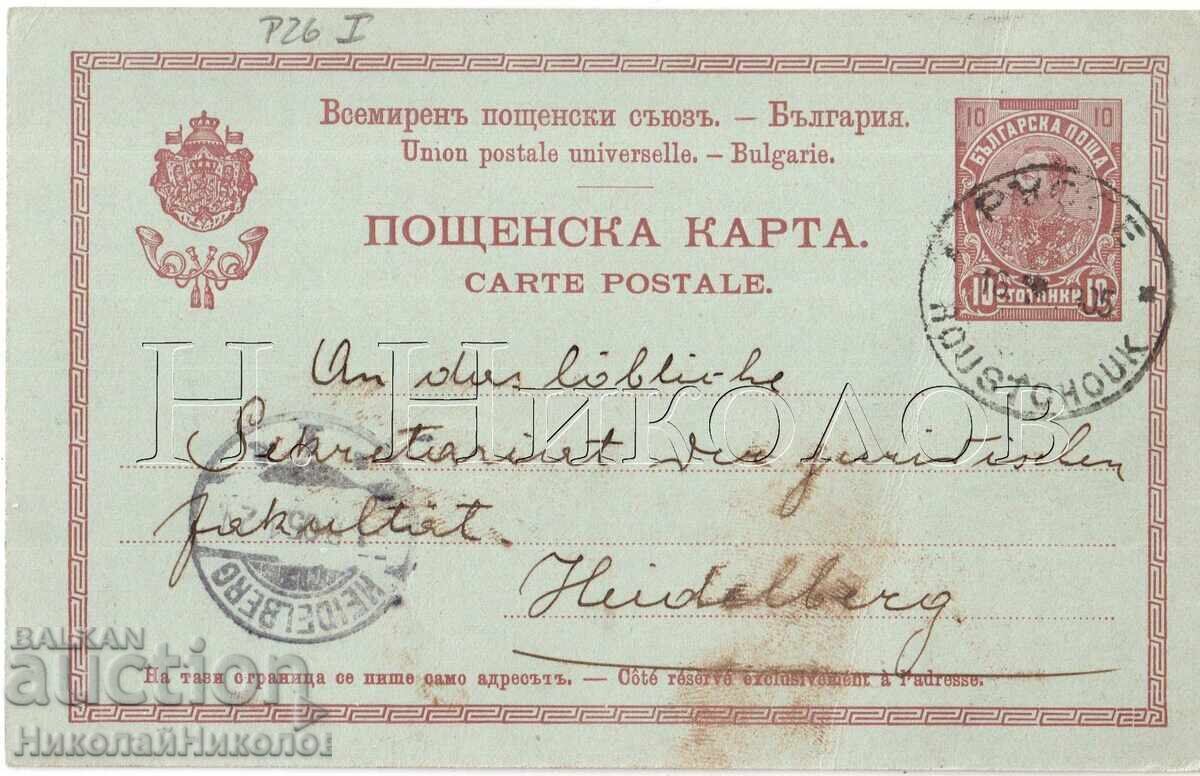 P26 I
Всемиренъ пощенски съюзъ. — България.
Union postale universelle. — Bulgarie.
ПОЩЕНСКА КАРТА.
CARTE POSTALE.
10 10
БЪЛГАРСКА ПОЩА
10 СТОТИНКИ 10
РУСЕ
16 05
ROUSTCHOUK
An das löbliche
Sekretariat der juridischen
Fakultät.
Heidelberg
HEIDELBERG
На тази страница се пише само адресътъ. — Côté réservé exclusivement à l'adresse.
Н. Николов
BALKAN
auction
НиколайНиколов